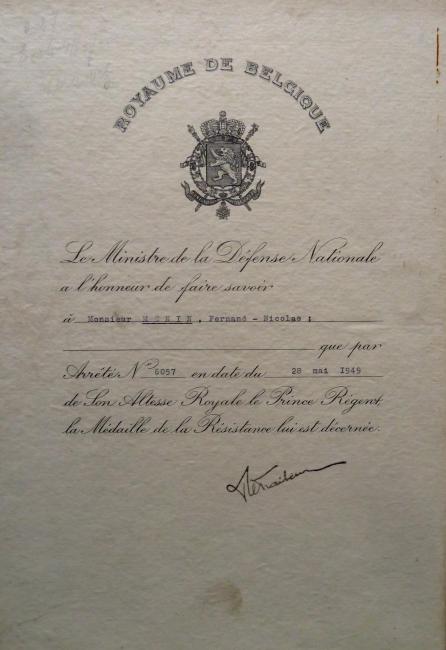 ROYAUME DE BELGIQUE
Le Ministre de la Défense Nationale
a l'honneur de faire savoir
à Monsieur , Fernand - Nicolas ;
que par
Arrêté N° 6057 en date du 28 mai 1949
de Son Altesse Royale le Prince Régent,
la Médaille de la Résistance lui est décernée.